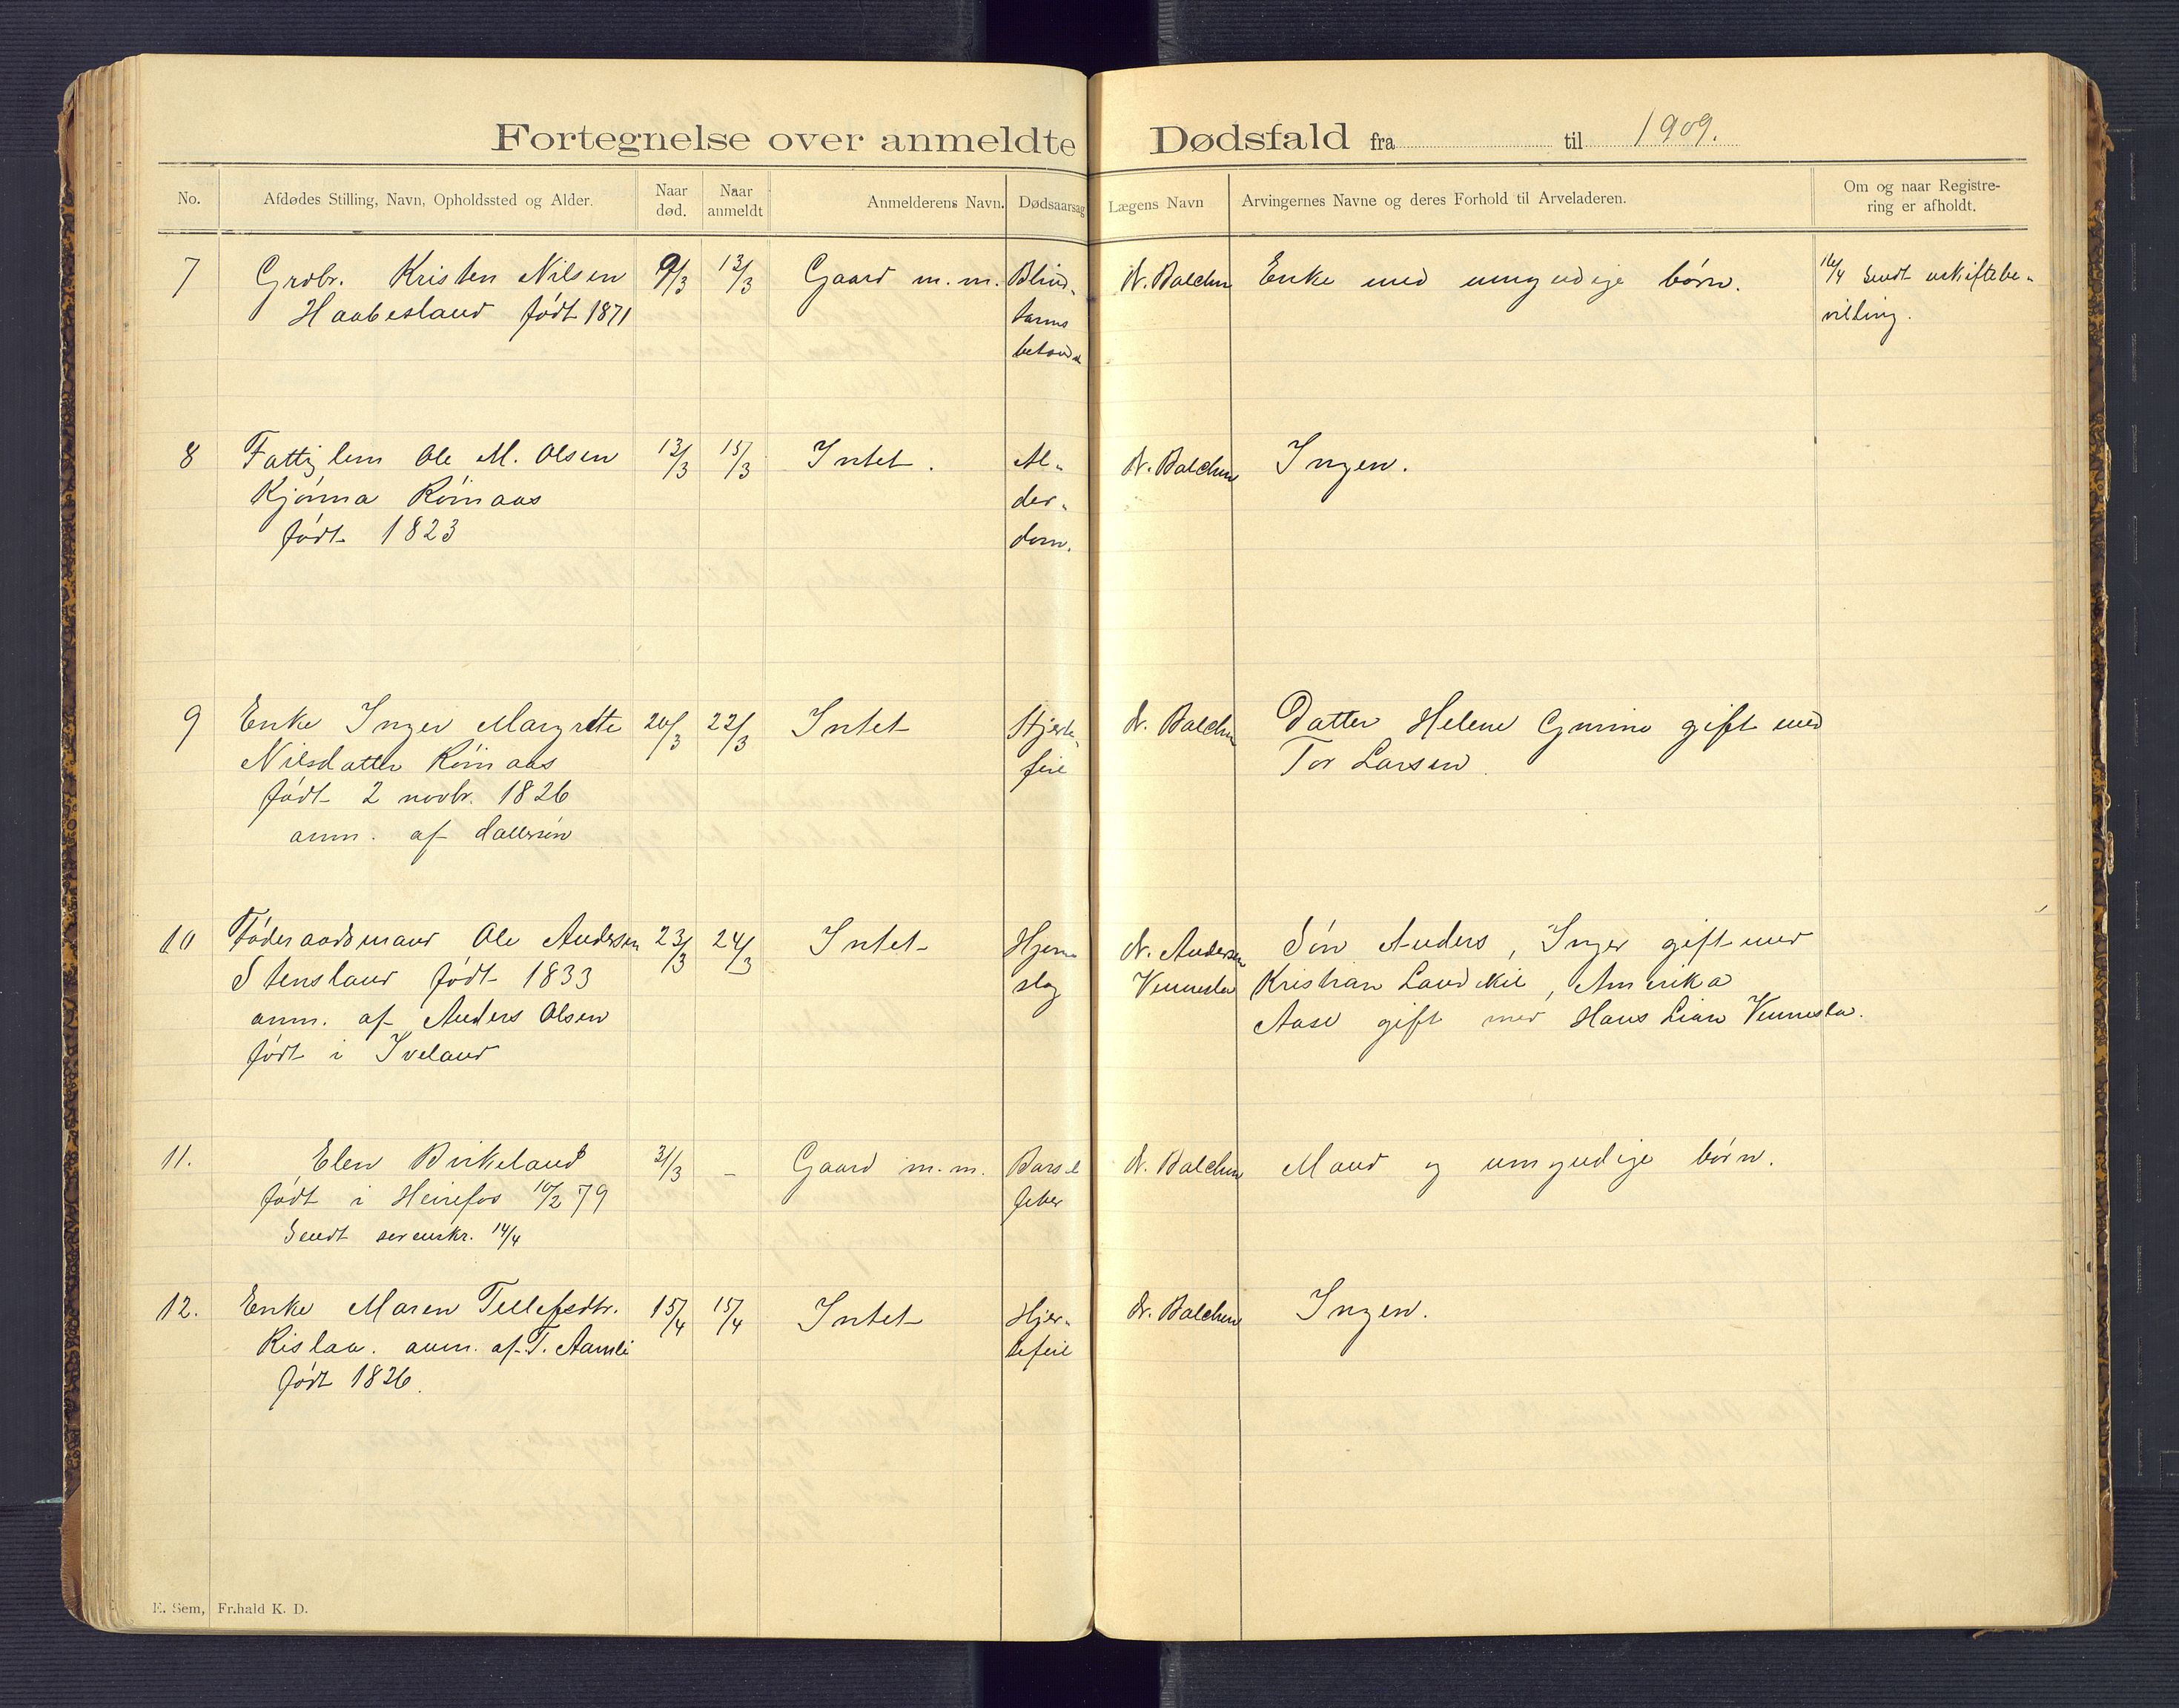 Fortegnelse over anmeldte Dødsfald fra til 1909.
No. Afdødes Stilling, Navn, Opholdssted og Alder. Naar død. Naar anmeldt Anmelderens Navn. Dødsaarsag Lægens Navn Arvingernes Navne og deres Forhold til Arveladeren. Om og naar Registrering er afholdt.
7 Grdbr. Kristen Nilsen 9/3 13/3 Gaard m.m. Blind- dr. Balchen Enke med umyndige børn. 16/4 Sendt uskiftebe-
Haabesland født 1871 tarms villing.
betænd
8 Fattiglem Ole M. Olsen 13/3 15/3 Intet. Al- dr. Balchen Ingen.
Kjønna Røinaas der-
født 1823 dom.
9 Enke Inger Margrette 20/3 22/3 Intet Hjerte- dr. Balchen Datter Helene gift med
Nilsdatter Røinaas feil Tor Larsen.
født 2 novbr. 1826
anm. af
10 Føderaadsmand Ole Andersen 23/3 24/3 Intet Hjerne dr. Andersen Søn Anders, Inger gift med
Stensland født 1833 slag Vennesla Kristian, Amerika
anm. af Anders Olsen Aase gift med Hans Lian Vennesla.
født i Iveland
11. Elen Birkeland 31/3 - Gaard m.m. Barsel dr. Balchen Mand og umyndige børn.
født i Heirefos 10/2 79 feber
Sendt 14/4
12. Enke Maren Tellefsdtr. 15/4 15/4 Intet Hjer- dr. Balchen Ingen.
Rislaa. anm. af T. Aamli tefeil
født 1826.
E. Sem, Fr.hald K. D.